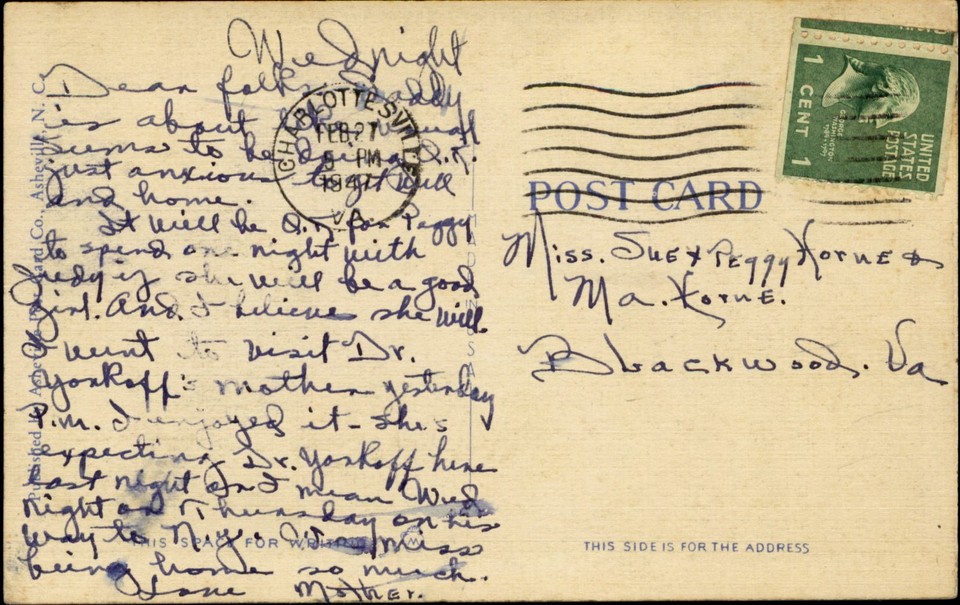 Wed night
Dear folks, Daddy
is about
seems to be doing O.K.
just anxious to get well
and home.
It will be O.K. for Peggy
to spend one night with
Judy if she will be a good
girl. And I believe she will.
I went to visit Dr.
Yonkoff's mother yesterday
P.m. I enjoyed it - she's
expecting Dr. Yonkoff here
last night or I mean Wed
night or Thursday on his
way to N.Y. miss
being home so much.
Love Mother.
Published by Asheville Post Card Co., Asheville, N. C.
THIS SPACE FOR WRITING
CHARLOTTESVILLE
FEB 27
PM
VA
POST CARD
1 CENT 1
GEORGE
WASHINGTON
UNITED
STATES
POSTAGE
Miss. Sue & Peggy Horne &
Ma. Horne.
Blackwood. Va
THIS SIDE IS FOR THE ADDRESS